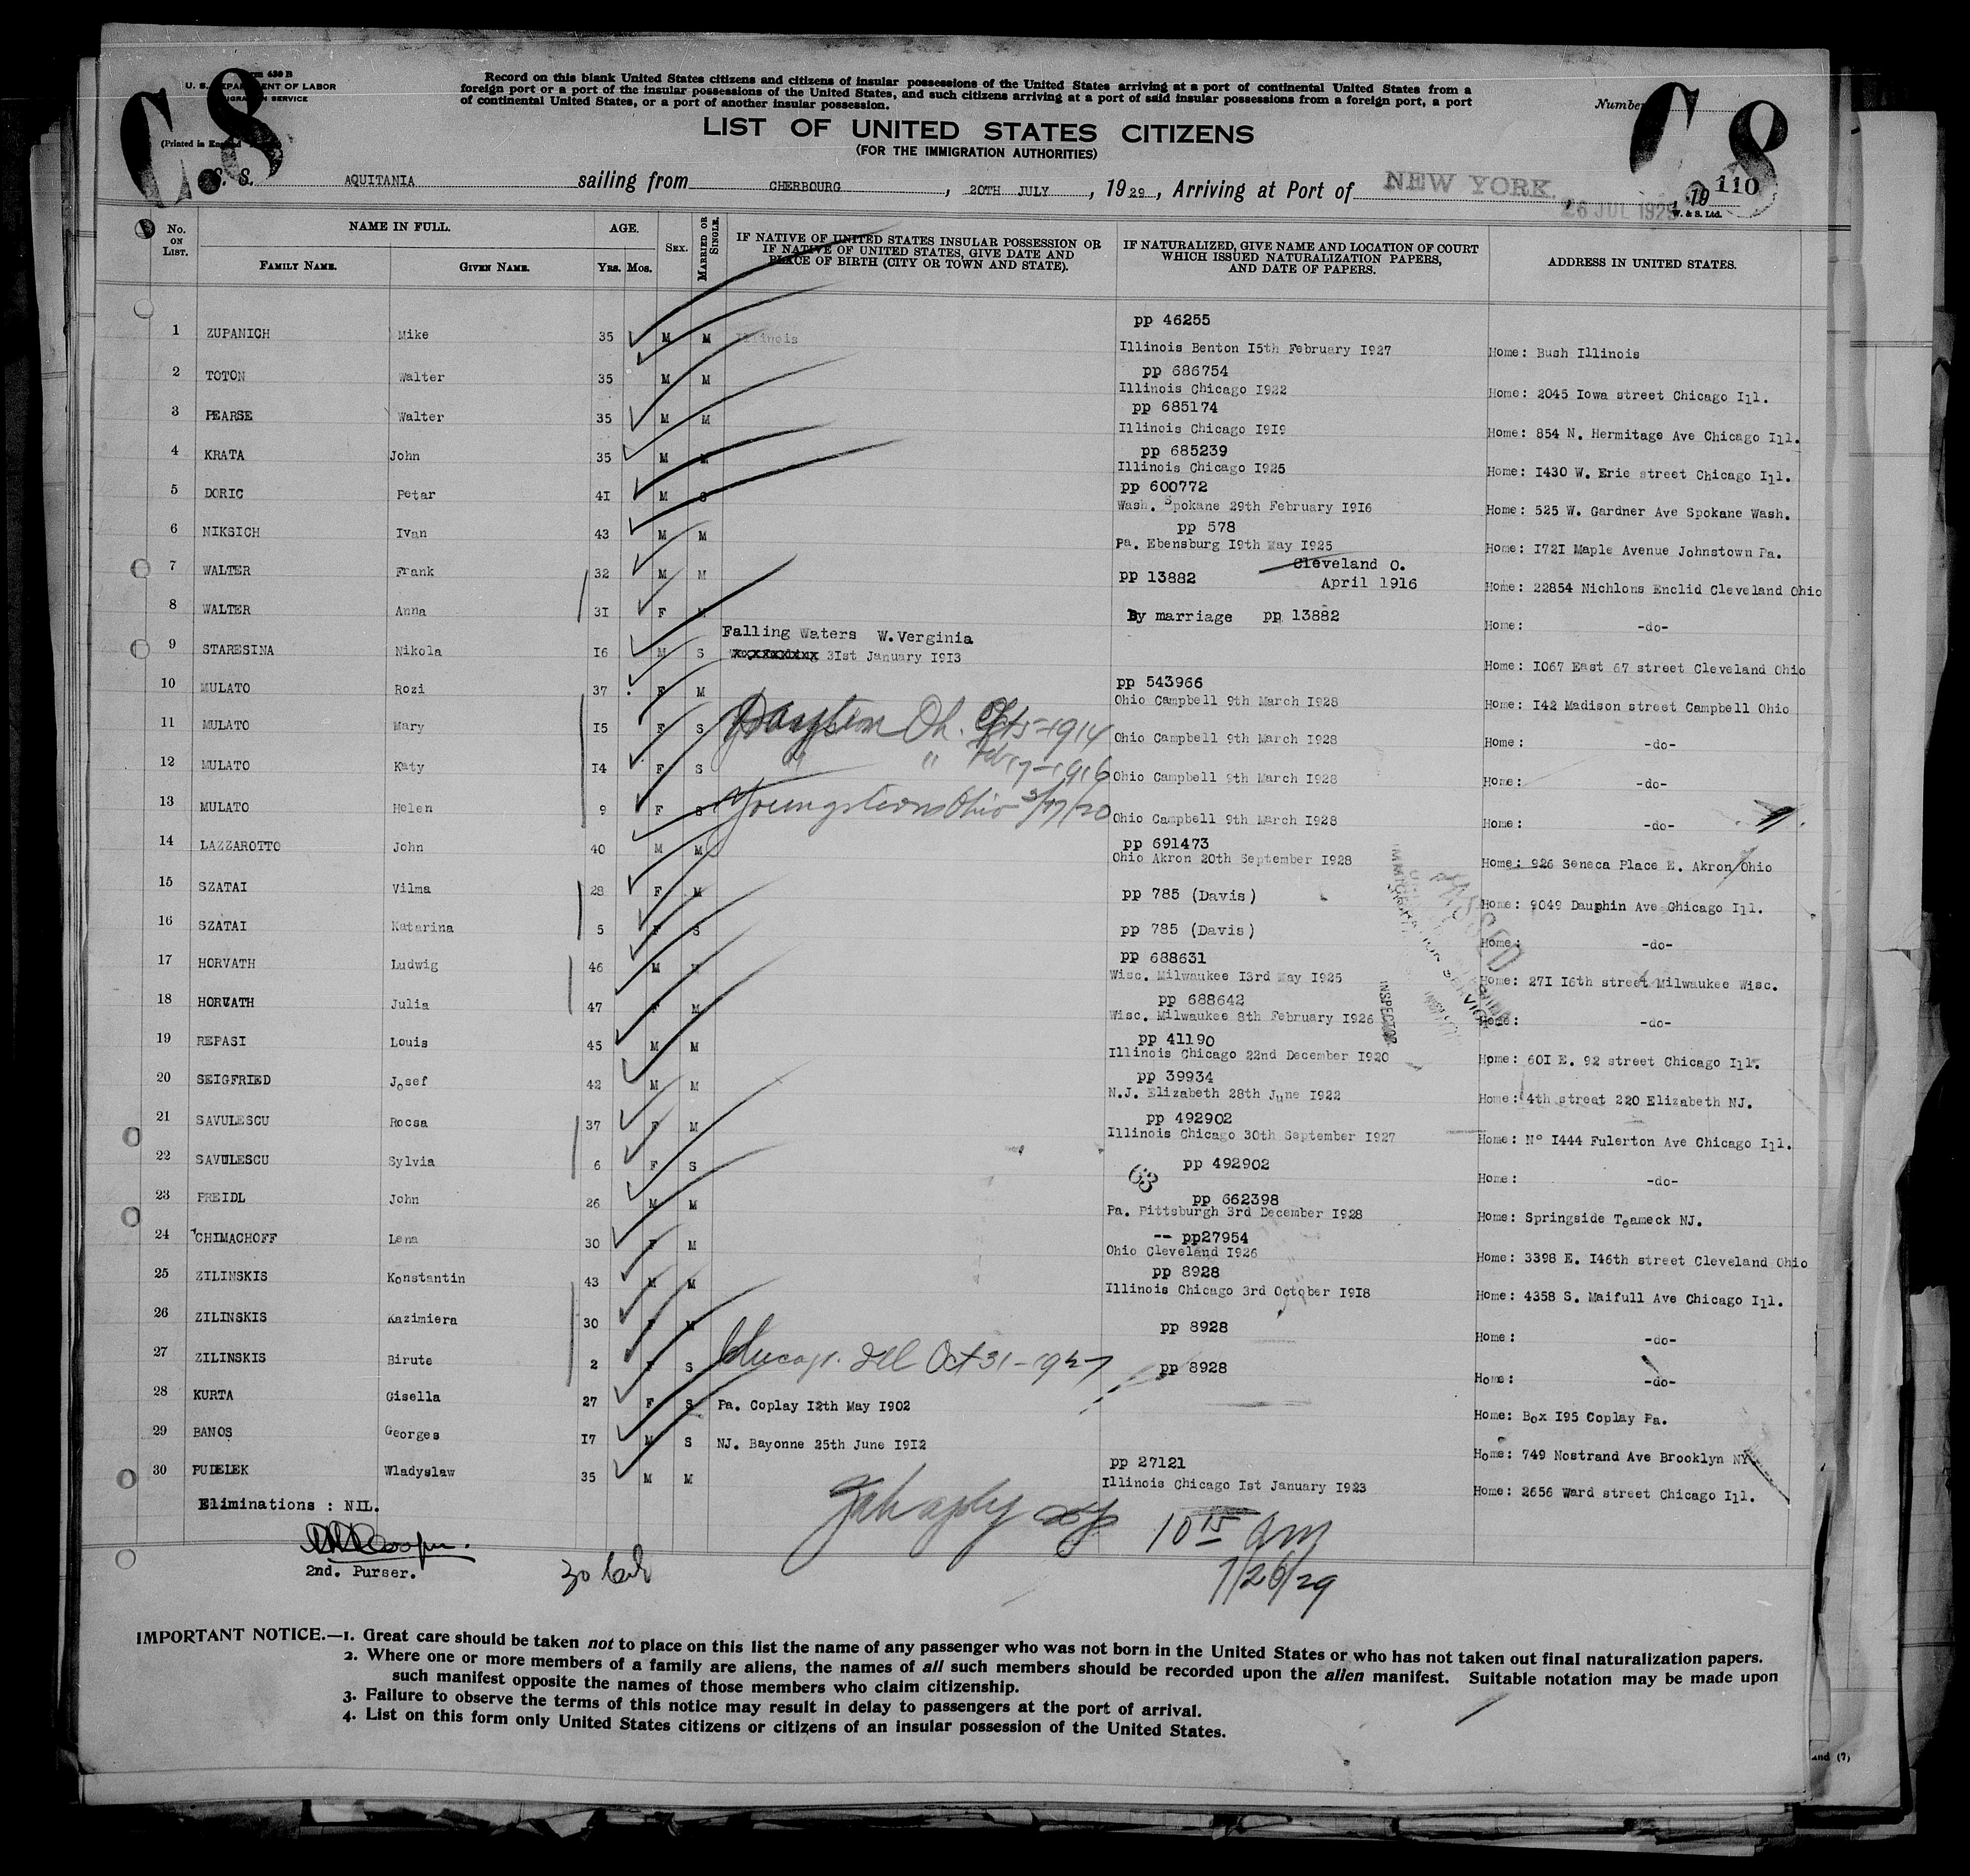 Form 630 B
U. S. DEPARTMENT OF LABOR
IMMIGRATION SERVICE
(Printed in England)
C8
C8
Record on this blank United States citizens and citizens of insular possessions of the United States arriving at a port of continental United States from a
foreign port or a port of the insular possessions of the United States, and such citizens arriving at a port of said insular possessions from a foreign port, a port
of continental United States, or a port of another insular possession.
Number
LIST OF UNITED STATES CITIZENS
(FOR THE IMMIGRATION AUTHORITIES)
S. S. AQUITANIA sailing from CHERBOURG, 20TH JULY, 1929, Arriving at Port of NEW YORK. 26 JUL 1929, 19 110
W. & S. Ltd.
No. ON LIST. NAME IN FULL. FAMILY NAME. GIVEN NAME. AGE. YRS. MOS. SEX. MARRIED OR SINGLE. IF NATIVE OF UNITED STATES INSULAR POSSESSION OR IF NATIVE OF UNITED STATES, GIVE DATE AND PLACE OF BIRTH (CITY OR TOWN AND STATE). IF NATURALIZED, GIVE NAME AND LOCATION OF COURT WHICH ISSUED NATURALIZATION PAPERS, AND DATE OF PAPERS. ADDRESS IN UNITED STATES.
pp 46255
1 ZUPANICH Mike 35 M M Illinois Illinois Benton I5th February I927 Home: Bush Illinois
pp 686754
2 TOTON Walter 35 M M Illinois Chicago I922 Home: 2045 Iowa street Chicago Ill.
pp 685174
3 PEARSE Walter 35 M M Illinois Chicago I9I9 Home: 854 N. Hermitage Ave Chicago Ill.
pp 685239
4 KRATA John 35 M M Illinois Chicago I925 Home: I430 W. Erie street Chicago Ill.
pp 600772
5 DORIC Petar 4I M S Wash. Spokane 29th February I9I6 Home: 525 W. Gardner Ave Spokane Wash.
pp 578
6 NIKSICH Ivan 43 M M Pa. Ebensburg I9th May I925 Home: I72I Maple Avenue Johnstown Pa.
Cleveland O.
7 WALTER Frank 32 M M pp 13882 April 1916 Home: 22854 Nichlons Enclid Cleveland Ohio
8 WALTER Anna 3I F M By marriage pp 13882 Home: -do-
Falling Waters W.Verginia
9 STARESINA Nikola I6 M S 3Ist January I9I3 Home: I067 East 67 street Cleveland Ohio
pp 543966
10 MULATO Rozi 37 F M Ohio Campbell 9th March I928 Home: I42 Madison street Campbell Ohio
11 MULATO Mary I5 F S Dayton Oh. Oct 5-1914 Ohio Campbell 9th March I928 Home: -do-
12 MULATO Katy I4 F S " " Feb 17-1916 Ohio Campbell 9th March I928 Home: -do-
13 MULATO Helen 9 F S Youngstown Ohio Ohio Campbell 9th March I928 Home: -do-
pp 691473
14 LAZZAROTTO John 40 M M Ohio Akron 20th September I928 Home: 926 Seneca Place E. Akron Ohio
15 SZATAI Vilma 28 F M pp 785 (Davis) Home: 9049 Dauphin Ave Chicago Ill.
16 SZATAI Katarina 5 F S pp 785 (Davis) Home: -do-
pp 688631
17 HORVATH Ludwig 46 M M Wisc. Milwaukee I3rd May I925 Home: 27I I6th street Milwaukee Wisc.
pp 688642
18 HORVATH Julia 47 F M Wisc. Milwaukee 8th February I926 Home: -do-
PASSED
IMMIGRATION SERVICE
INSPECTOR
pp 41190
19 REPASI Louis 45 M M Illinois Chicago 22nd December I920 Home: 60I E. 92 street Chicago Ill.
pp 39934
20 SEIGFRIED Josef 42 M M N.J. Elizabeth 28th June I922 Home: 4th street 220 Elizabeth NJ.
pp 492902
21 SAVULESCU Rocsa 37 F M Illinois Chicago 30th September I927 Home: N° I444 Fulerton Ave Chicago Ill.
22 SAVULESCU Sylvia 6 F S 63 pp 492902 Home: -do-
pp 662398
23 FREIDL John 26 M M Pa. Pittsburgh 3rd December I928 Home: Springside Teameck NJ.
-- pp27954
24 CHIMACHOFF Lena 30 F M Ohio Cleveland I926 Home: 3398 E. I46th street Cleveland Ohio
pp 8928
25 ZILINSKIS Konstantin 43 M M Illinois Chicago 3rd October I9I8 Home: 4358 S. Maifull Ave Chicago Ill.
26 ZILINSKIS Kazimiera 30 F M pp 8928 Home: -do-
27 ZILINSKIS Birute 2 F S Chicago. Ill Oct 31-1927 pp 8928 Home: -do-
28 KURTA Gisella 27 F S Pa. Coplay I2th May I902 Home: Box I95 Coplay Pa.
29 BANOS Georges I7 M S NJ. Bayonne 25th June I9I2 Home: 749 Nostrand Ave Brooklyn NY.
pp 27121
30 PUDELEK Wladyslaw 35 M M Illinois Chicago Ist January I923 Home: 2656 Ward street Chicago Ill.
Eliminations : NIL.
10 15 am
7/26/29
Cooper.
2nd. Purser.
30
IMPORTANT NOTICE.—1. Great care should be taken not to place on this list the name of any passenger who was not born in the United States or who has not taken out final naturalization papers.
2. Where one or more members of a family are aliens, the names of all such members should be recorded upon the alien manifest. Suitable notation may be made upon
such manifest opposite the names of those members who claim citizenship.
3. Failure to observe the terms of this notice may result in delay to passengers at the port of arrival.
4. List on this form only United States citizens or citizens of an insular possession of the United States.
and (7)